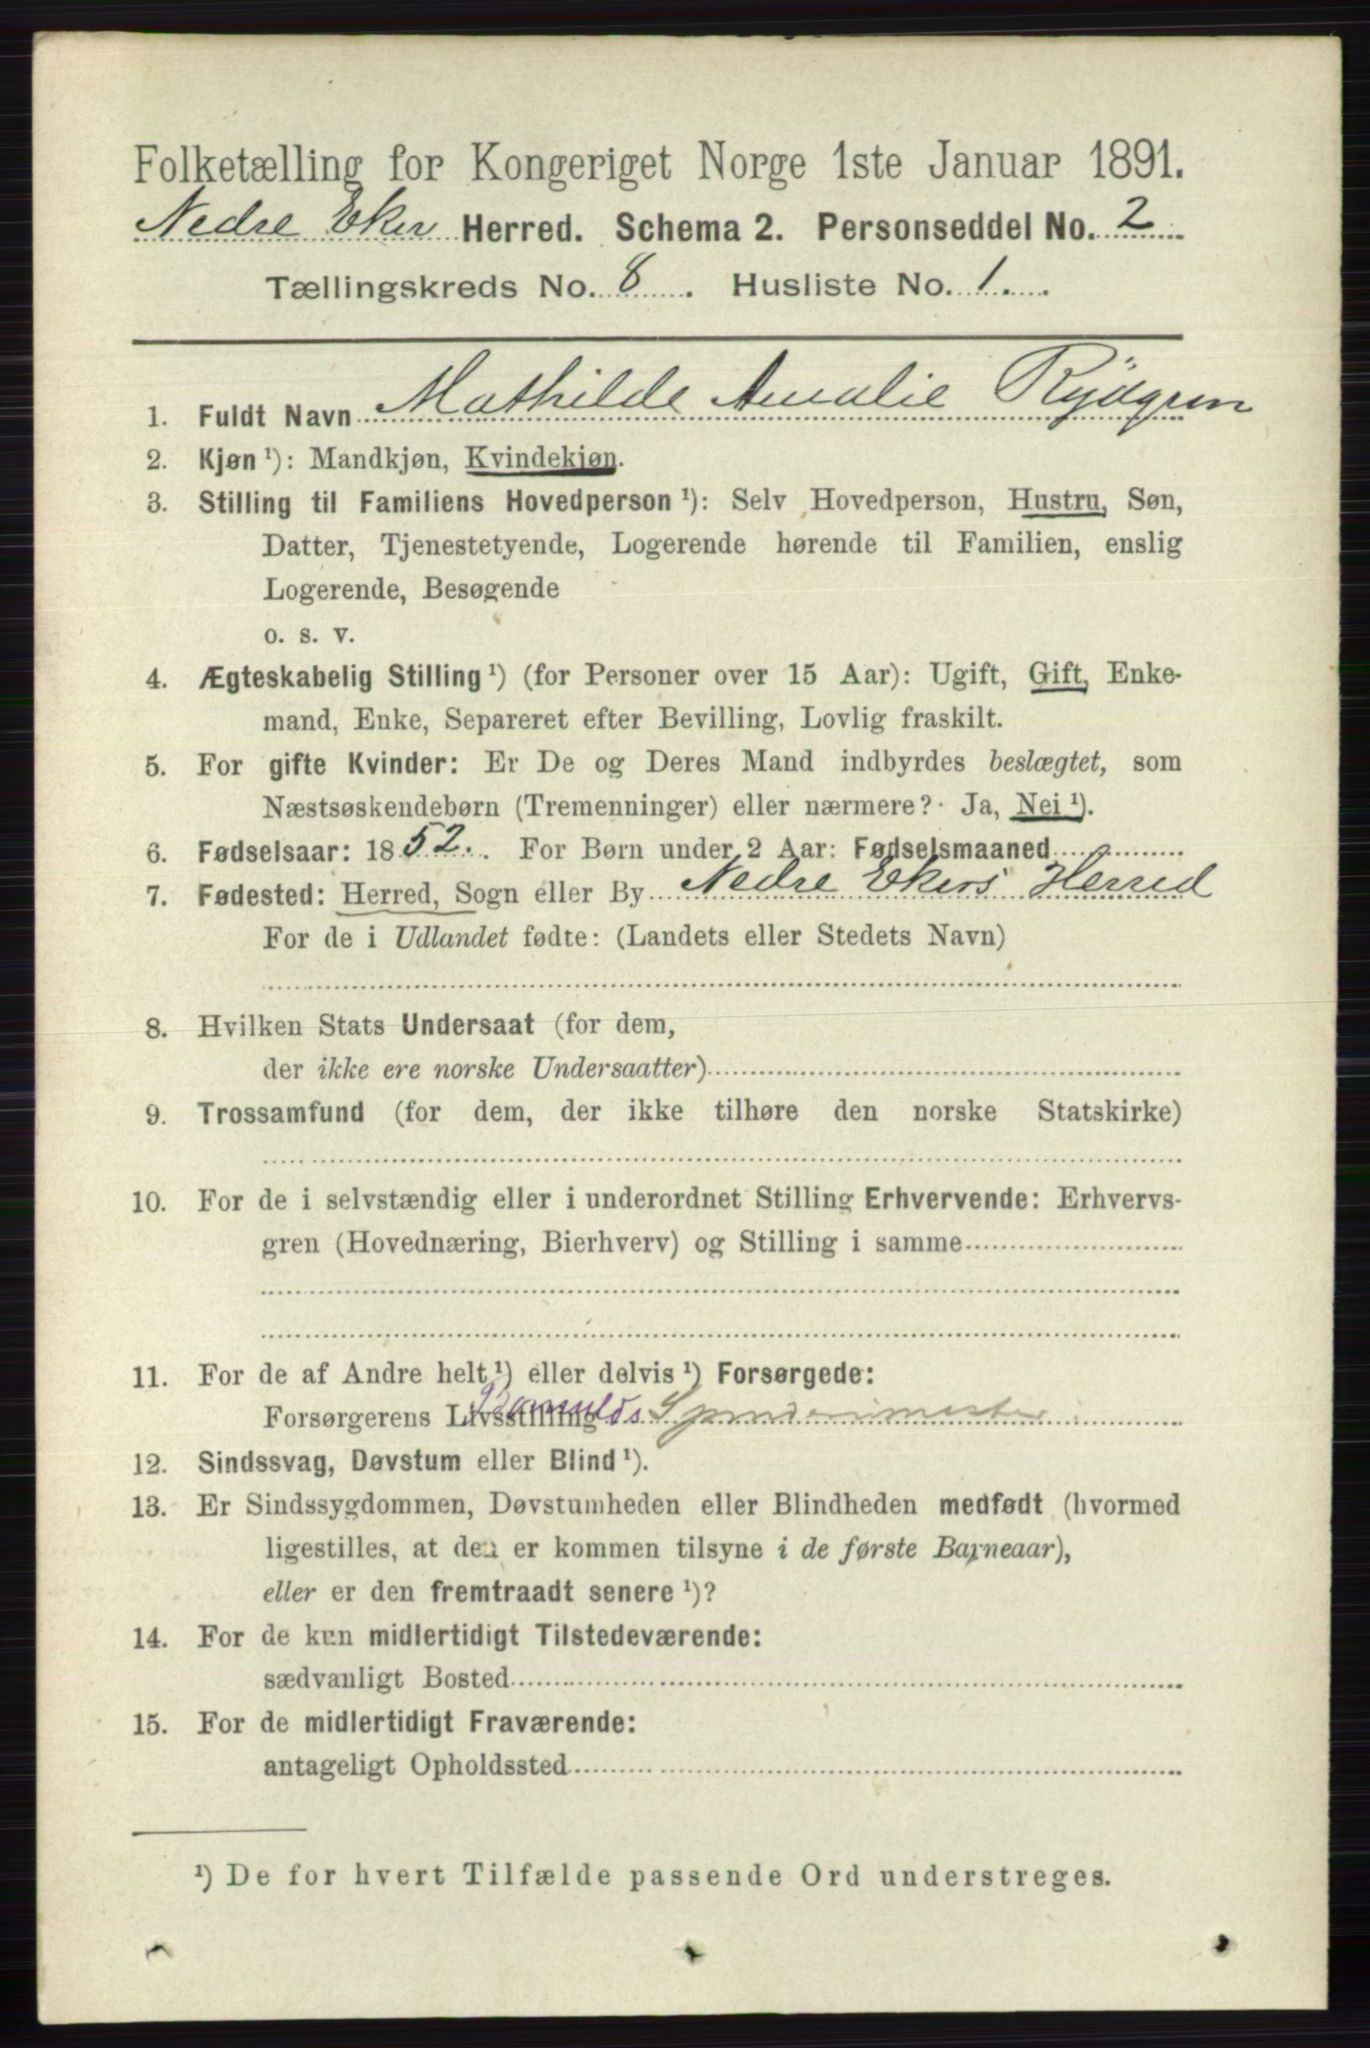 Folketælling for Kongeriget Norge 1ste Januar 1891.
Nedre Eker Herred. Schema 2. Personseddel No. 2
Tællingskreds No. 8. Husliste No. 1.
1. Fuldt Navn Mathilde Amalie Rydgren
2. Kjøn ¹): Mandkjøn, Kvindekjøn.
3. Stilling til Familiens Hovedperson ¹): Selv Hovedperson, Hustru, Søn,
Datter, Tjenestetyende, Logerende hørende til Familien, enslig
Logerende, Besøgende
o. s. v.
4. Ægteskabelig Stilling ¹) (for Personer over 15 Aar): Ugift, Gift, Enke-
mand, Enke, Separeret efter Bevilling, Lovlig fraskilt.
5. For gifte Kvinder: Er De og Deres Mand indbyrdes beslægtet, som
Næstsøskendebørn (Tremenninger) eller nærmere? Ja, Nei ¹).
6. Fødselsaar: 1852. For Børn under 2 Aar: Fødselsmaaned
7. Fødested: Herred, Sogn eller By Nedre Ekers Herred
For de i Udlandet fødte: (Landets eller Stedets Navn)
8. Hvilken Stats Undersaat (for dem,
der ikke ere norske Undersaatter)
9. Trossamfund (for dem, der ikke tilhøre den norske Statskirke)
10. For de i selvstændig eller i underordnet Stilling Erhvervende: Erhvervs-
gren (Hovednæring, Bierhverv) og Stilling i samme
11. For de af Andre helt ¹) eller delvis ¹) Forsørgede:
Forsørgerens Livsstilling Bomulds Spinderimester
12. Sindssvag, Døvstum eller Blind ¹).
13. Er Sindssygdommen, Døvstumheden eller Blindheden medfødt (hvormed
ligestilles, at den er kommen tilsyne i de første Barneaar),
eller er den fremtraadt senere ¹)?
14. For de kun midlertidigt Tilstedeværende:
sædvanligt Bosted
15. For de midlertidigt Fraværende:
antageligt Opholdssted
¹) De for hvert Tilfælde passende Ord understreges.